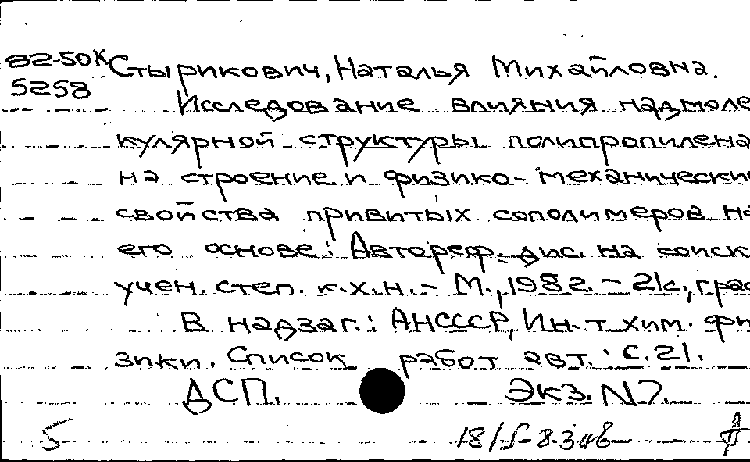 82-50К Стырикович, Наталья Михайловна.
5258
Исследование влияния надмоле
кулярной структуры полипропилена
на строение и физико-механически
свойства привитых сополимеров на
его основе: Автореф. дис. на соиск
учен. степ. к.х.н. - М., 1982. - 21с, граф
В надзаг.: АН СССР, Ин-т хим. фи
зики. Список работ авт.: с. 21.
ДСП. Экз. N7.
5